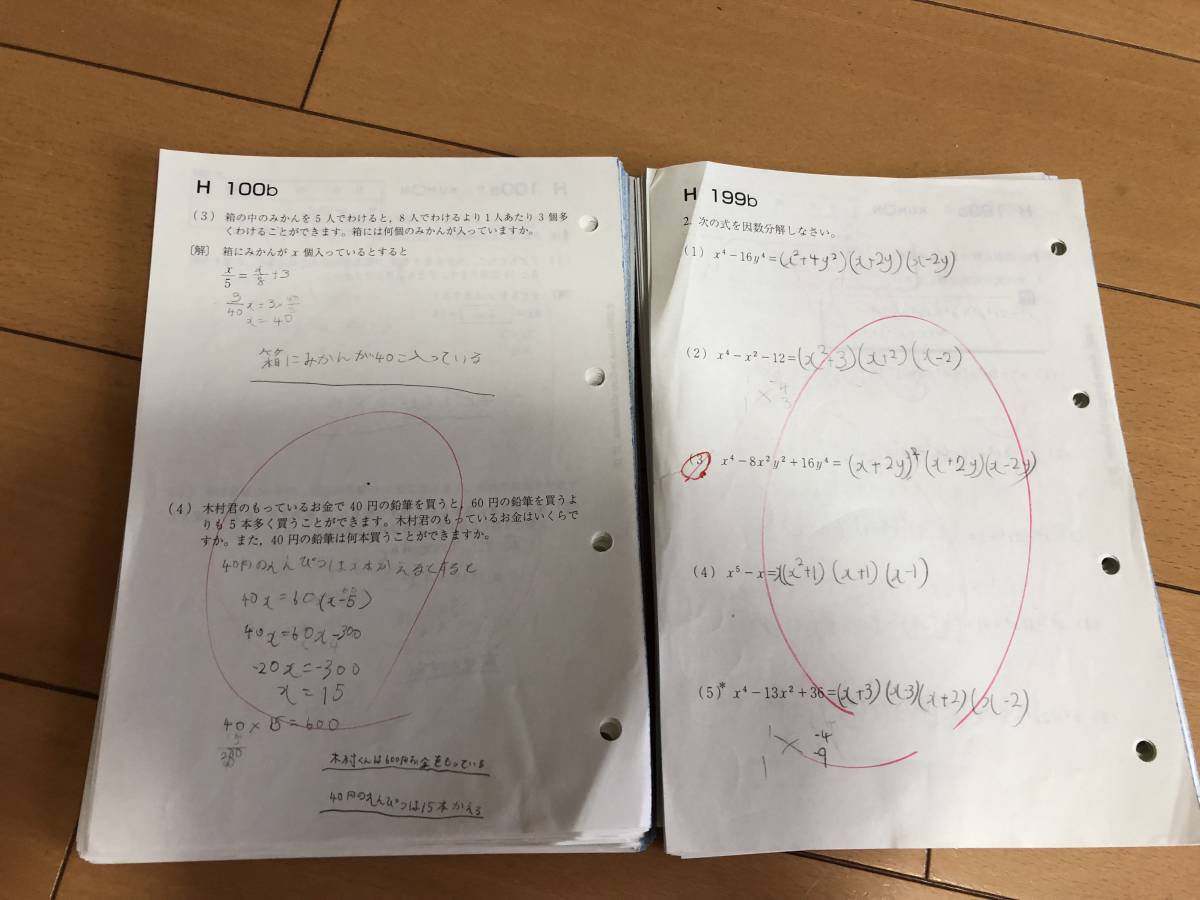 H 100b
(3) 箱の中のみかんを5人でわけると，8人でわけるより1人あたり3個多
くわけることができます。箱には何個のみかんが入っていますか。
〔解〕 箱にみかんが x 個入っているとすると
x/5 = x/8 + 3
3/40 x = 3
x = 40
箱にみかんが40こ入っている
(4) 木村君のもっているお金で40円の鉛筆を買うと，60円の鉛筆を買うよ
りも5本多く買うことができます。木村君のもっているお金はいくらで
すか。また，40円の鉛筆は何本買うことができますか。
40円のえんぴつはx本かえるとすると
40x=60(x-5)
40x=60x-300
-20x=-300
x=15
40×15=600
木村くんは600円お金をもっている
40円のえんぴつは15本かえる
H 199b
2. 次の式を因数分解しなさい。
(1) x⁴−16y⁴=(x²+4y²)(x+2y)(x-2y)
(2) x⁴−x²−12=(x²+3)(x+2)(x-2)
1 -4
1 3
(3) x⁴−8x²y²+16y⁴= (x+2y)² (x+2y)(x-2y)
(4) x⁵−x=x(x²+1)(x+1)(x-1)
(5)* x⁴−13x²+36=(x+3)(x-3)(x+2)(x-2)
1 -4
1 -9